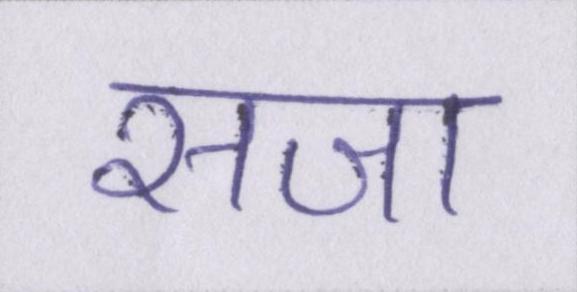 सजा